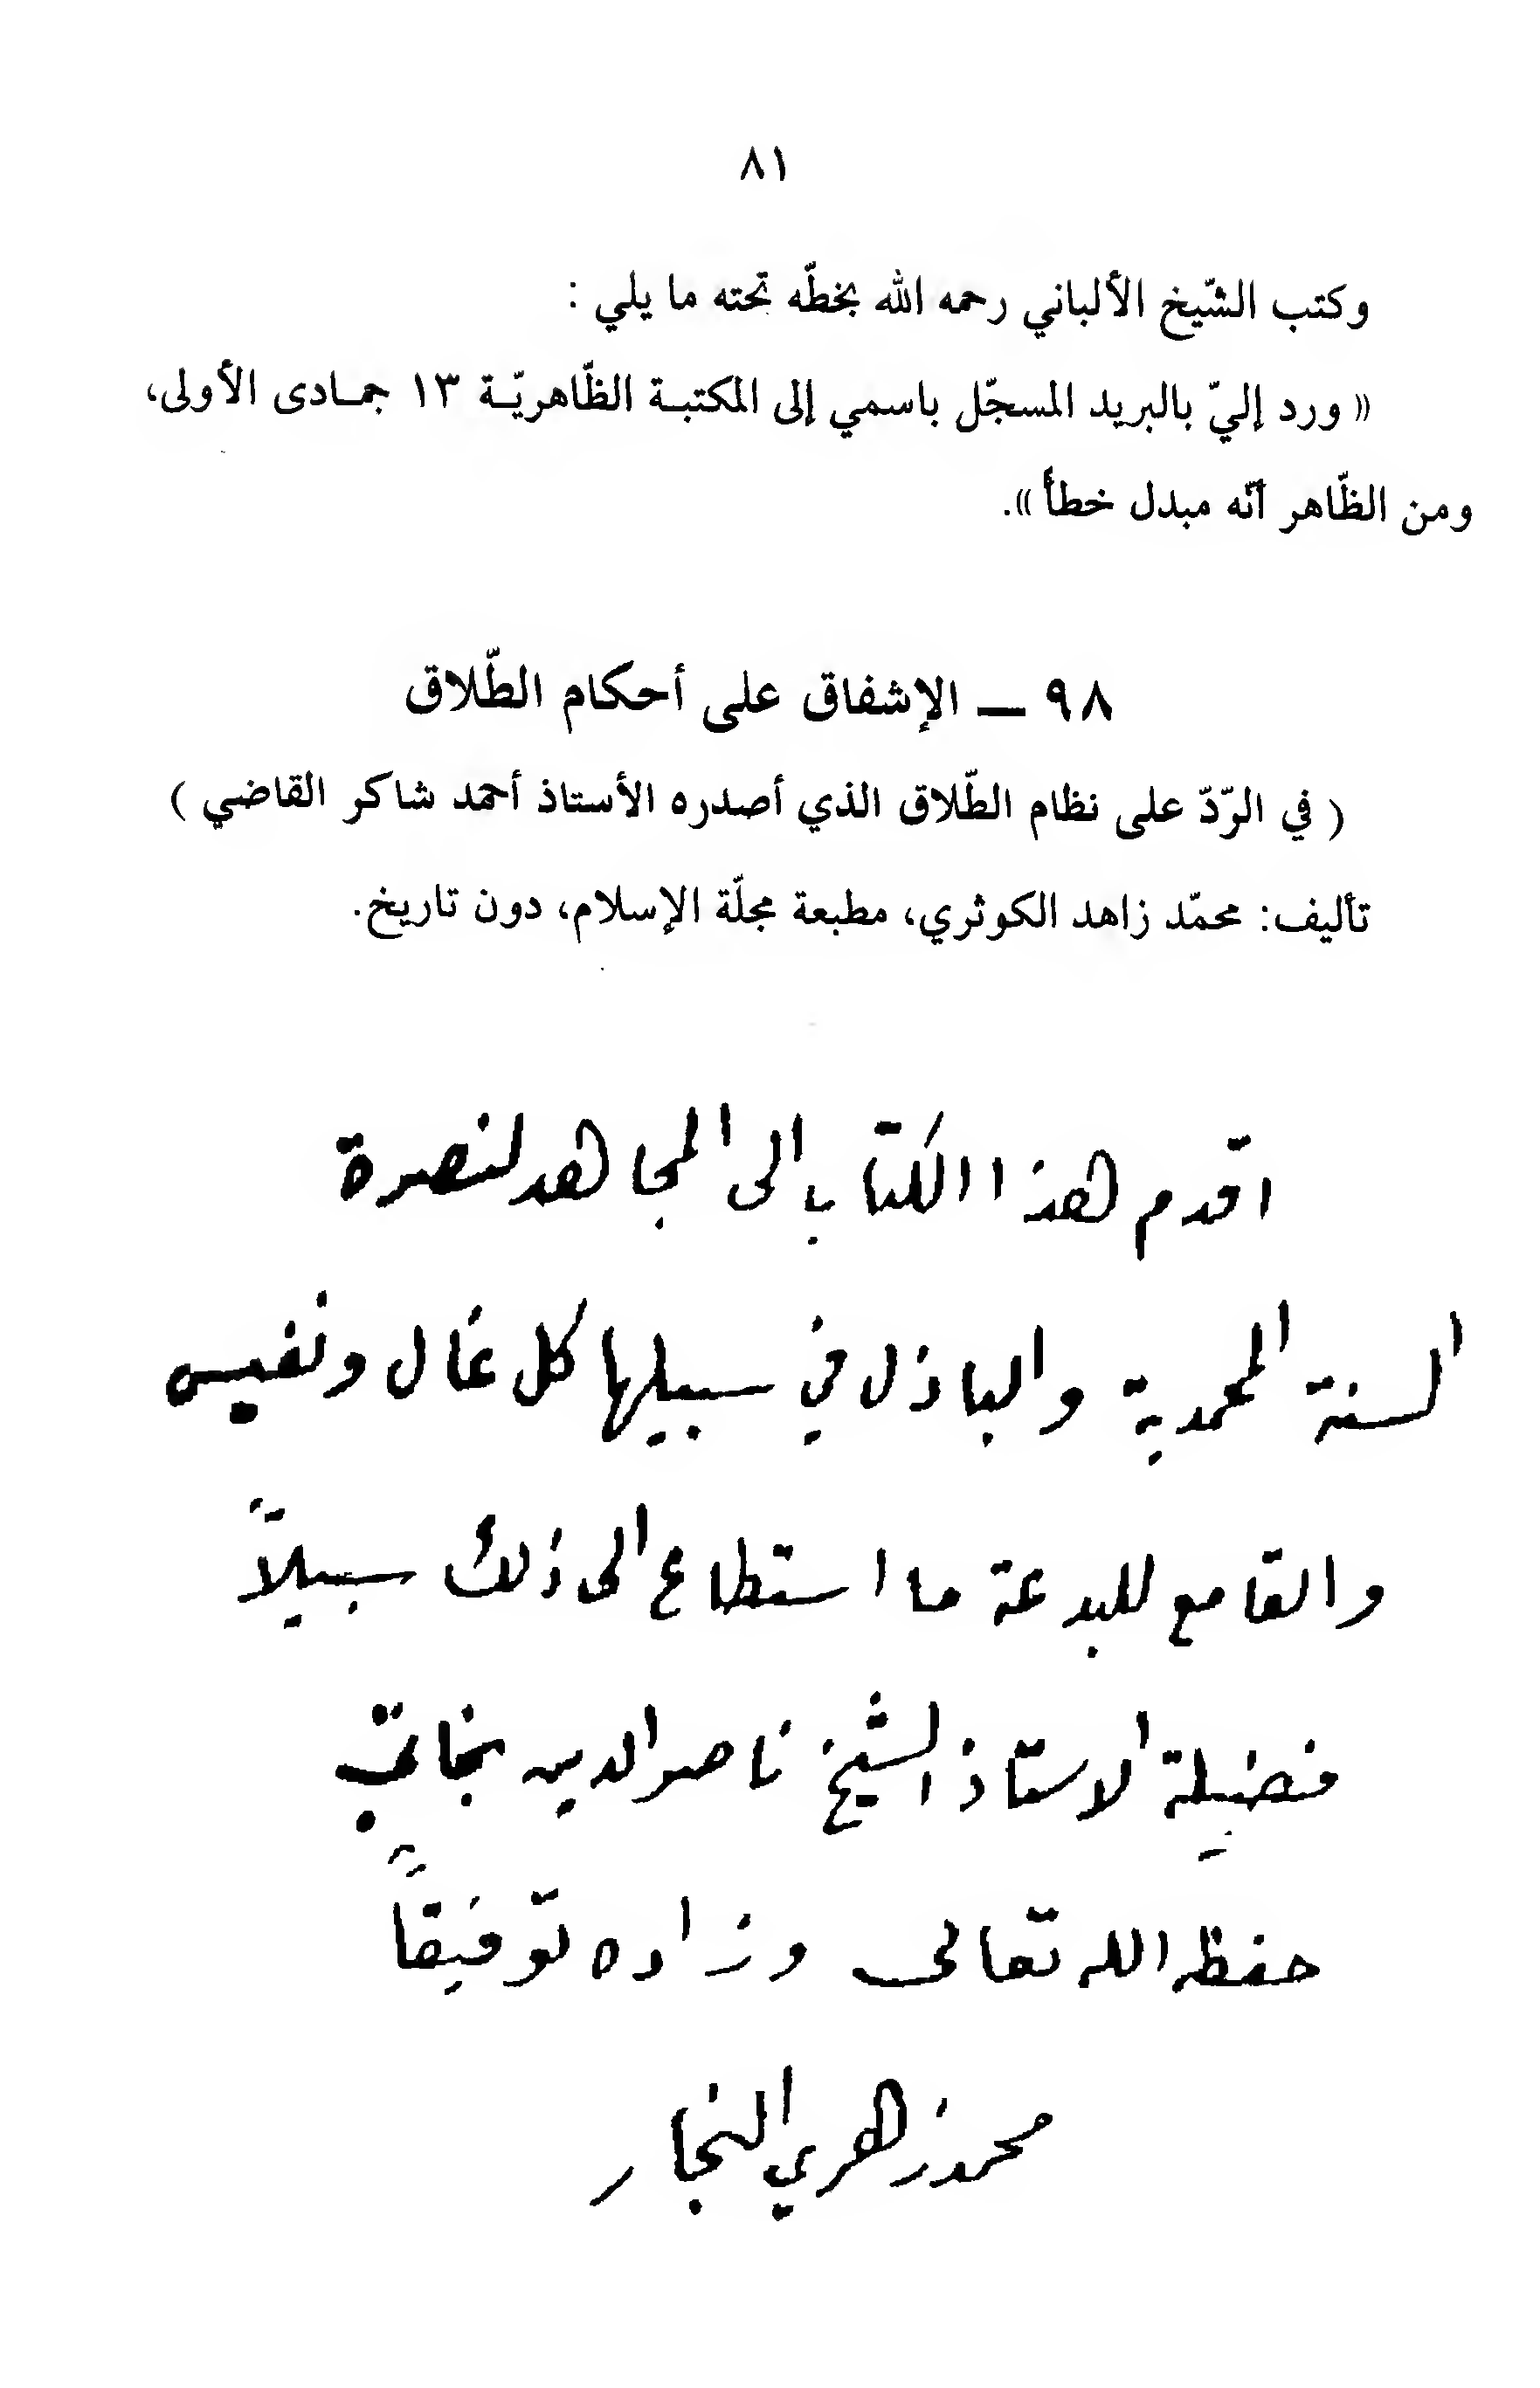 ٨١
وكتب الشّيخ الألباني رحمه الله بخطّه تحته ما يلي :
« ورد إليّ بالبريد المسجّل باسمي إلى المكتبـة الظّاهريّـة ١٣ جمـادى الأولى،
ومن الظّاهر أنّه مبدل خطأ ».
٩٨ ــ الإشفاق على أحكام الطّلاق
( في الرّدّ على نظام الطّلاق الذي أصدره الأستاذ أحمد شاكر القاضي )
تأليف: محمّد زاهد الكوثري، مطبعة مجلّة الإسلام، دون تاريخ.
اقدم هذا الكتاب الى المجاهد لنصرة
السنة المحمدية والباذل في سبيلها كل غال ونفيس
والقامع للبدعة ما استطاع الى ذلك سبيلاً
فضيلة الاستاذ الشيخ ناصر الدين نجاتي
حفظه الله تعالى وزاده توفيقاً
محمد زهري النجار